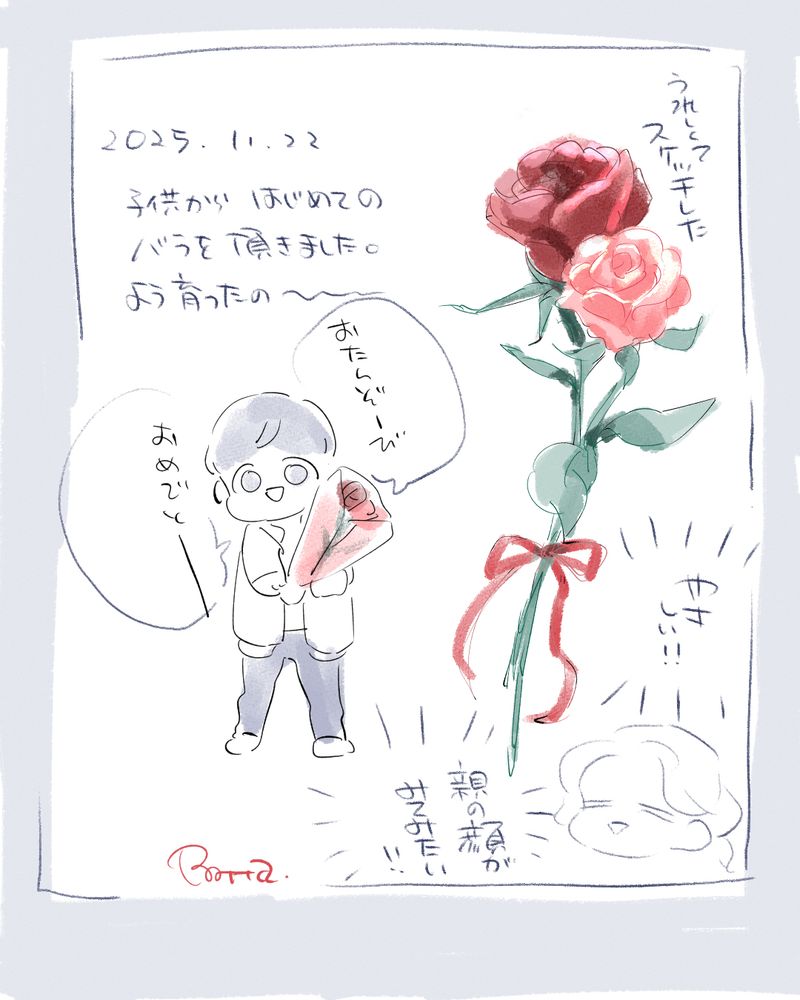 2025.11.22
子供から はじめての
バラを 頂きました。
よう育ったの〜〜〜
うれしくて
スケッチした
おたんぞーび
おめでと
やさ
しい!!
親の顔が
みてみたい
!!